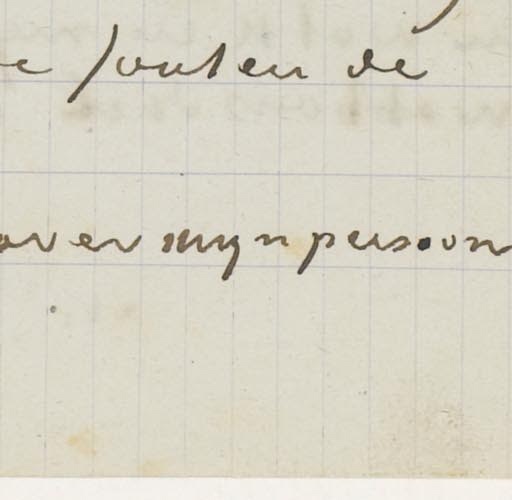 fouten de
over mijn persoon